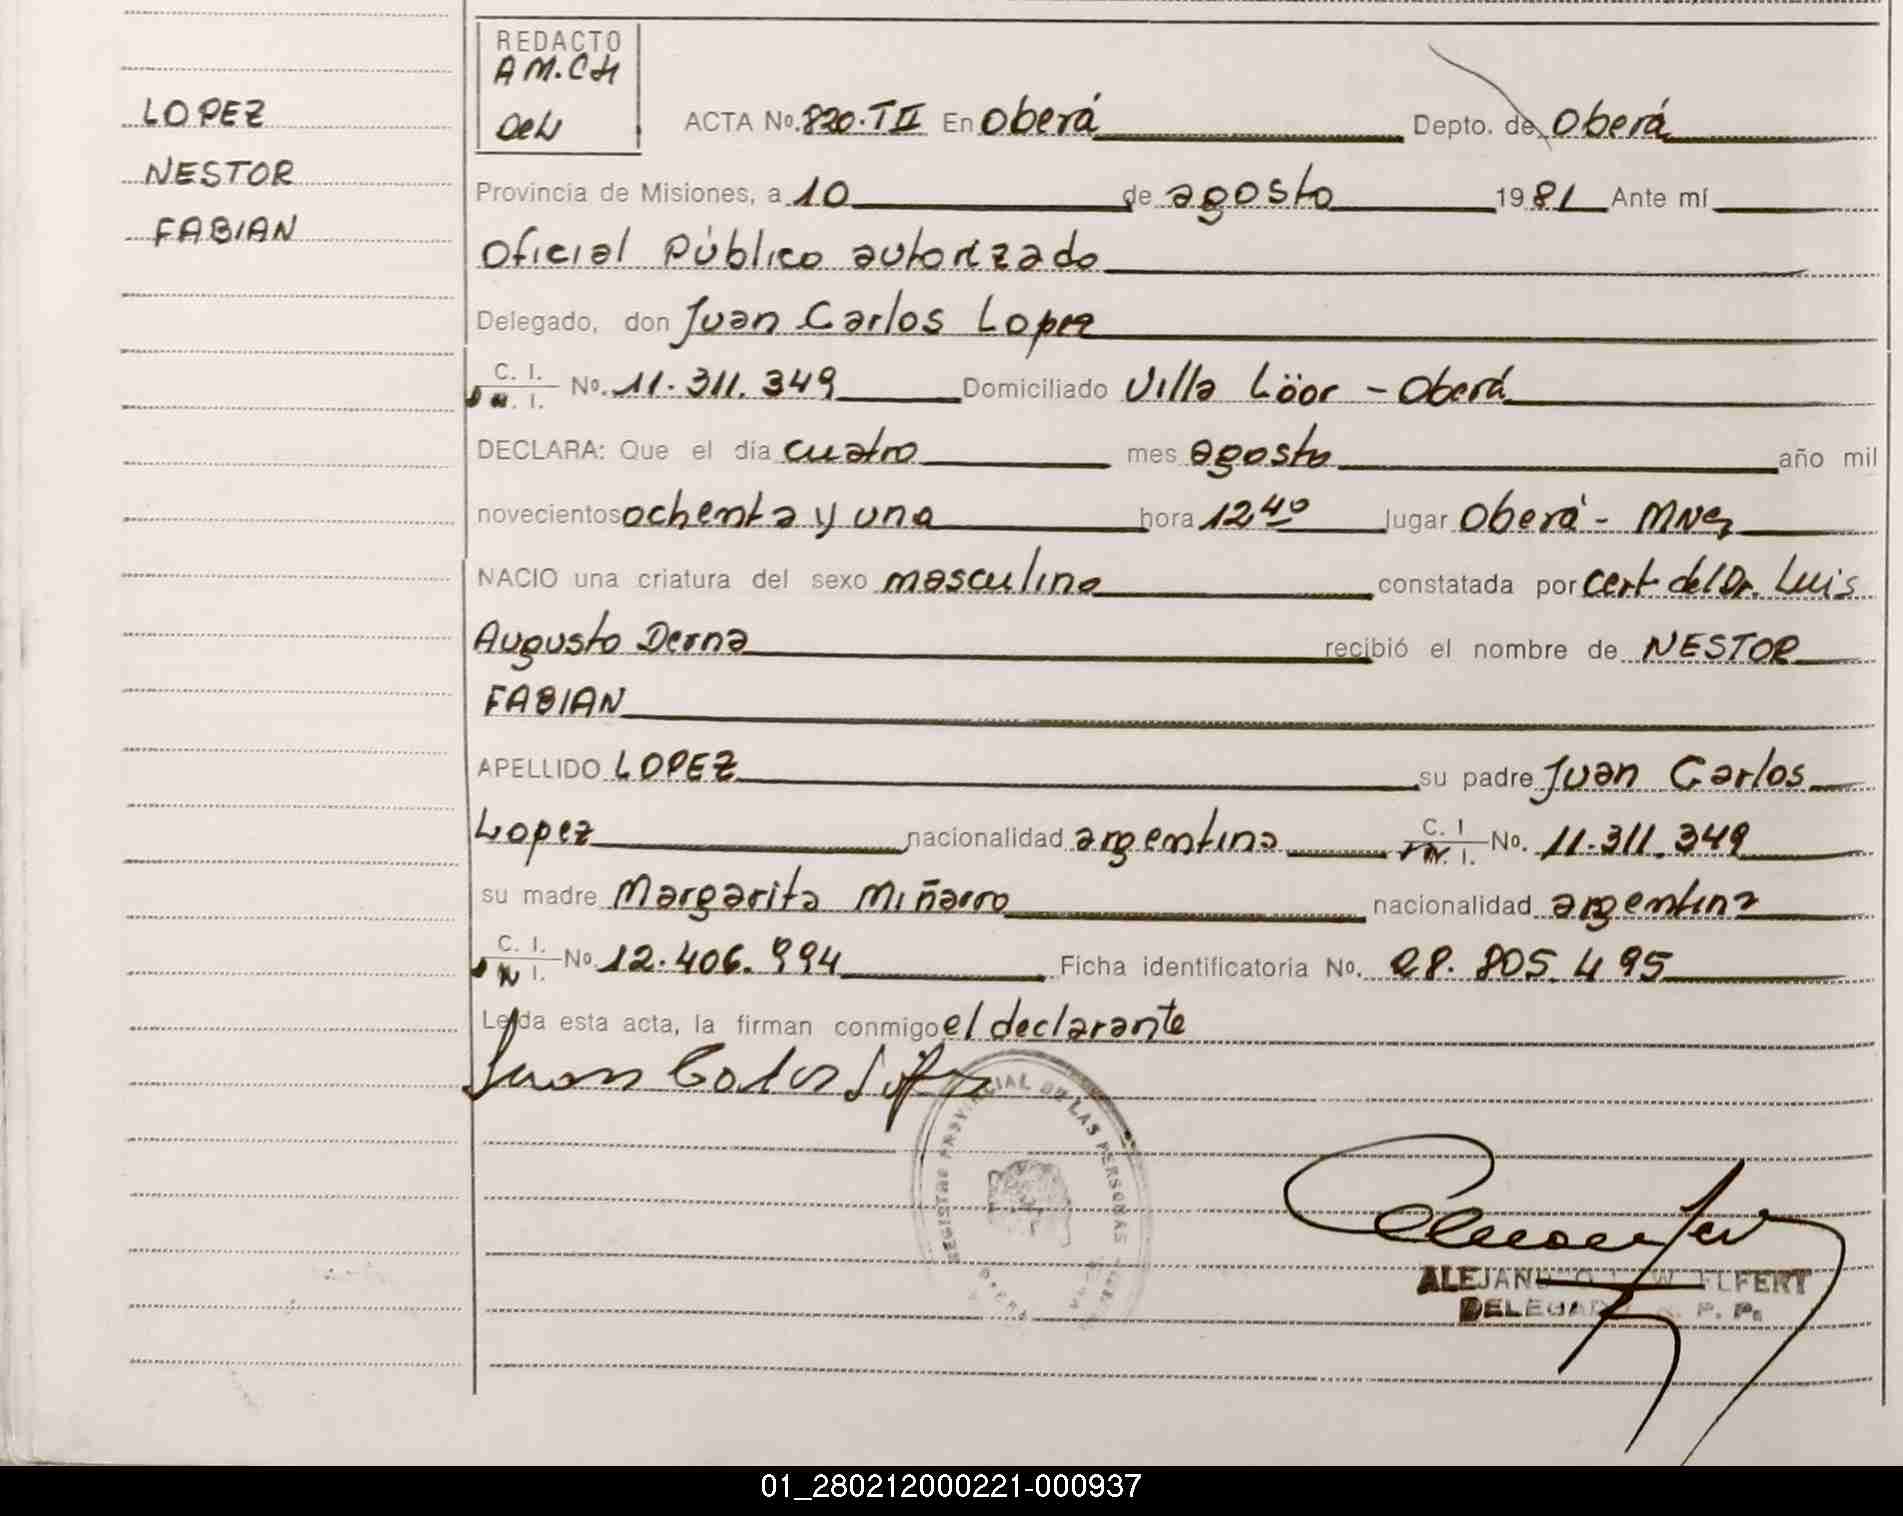 REDACTO
AM.CH
LOPEZ
NESTOR
FABIAN
ACTA No. 820. TII En Oberá Depto. de Oberá
Provincia de Misiones, a 10 de agosto 1981 Ante mí
Oficial Público autorizado
Delegado, don Juan Carlos Lopez
C. I. No. 11.311.349 Domiciliado Villa Löor - Oberá
DECLARA: Que el día cuatro mes agosto año mil
novecientos ochenta y uno hora 12 40 lugar Oberá - Mnes
NACIO una criatura del sexo masculino constatada por cert del Dr. Luis
Augusto Derna recibió el nombre de NESTOR
FABIAN
APELLIDO LOPEZ su padre Juan Carlos
Lopez nacionalidad argentina C. I No. 11.311.349
su madre Margarita Miñarro nacionalidad argentina
C. I. No. 12.406.994 Ficha identificatoria No. 28.805.495
Leída esta acta, la firman conmigo el declarante
Juan Carlos López
REGISTRO PROVINCIAL DE LAS PERSONAS
DELEGADO R. P. P.
01_280212000221-000937